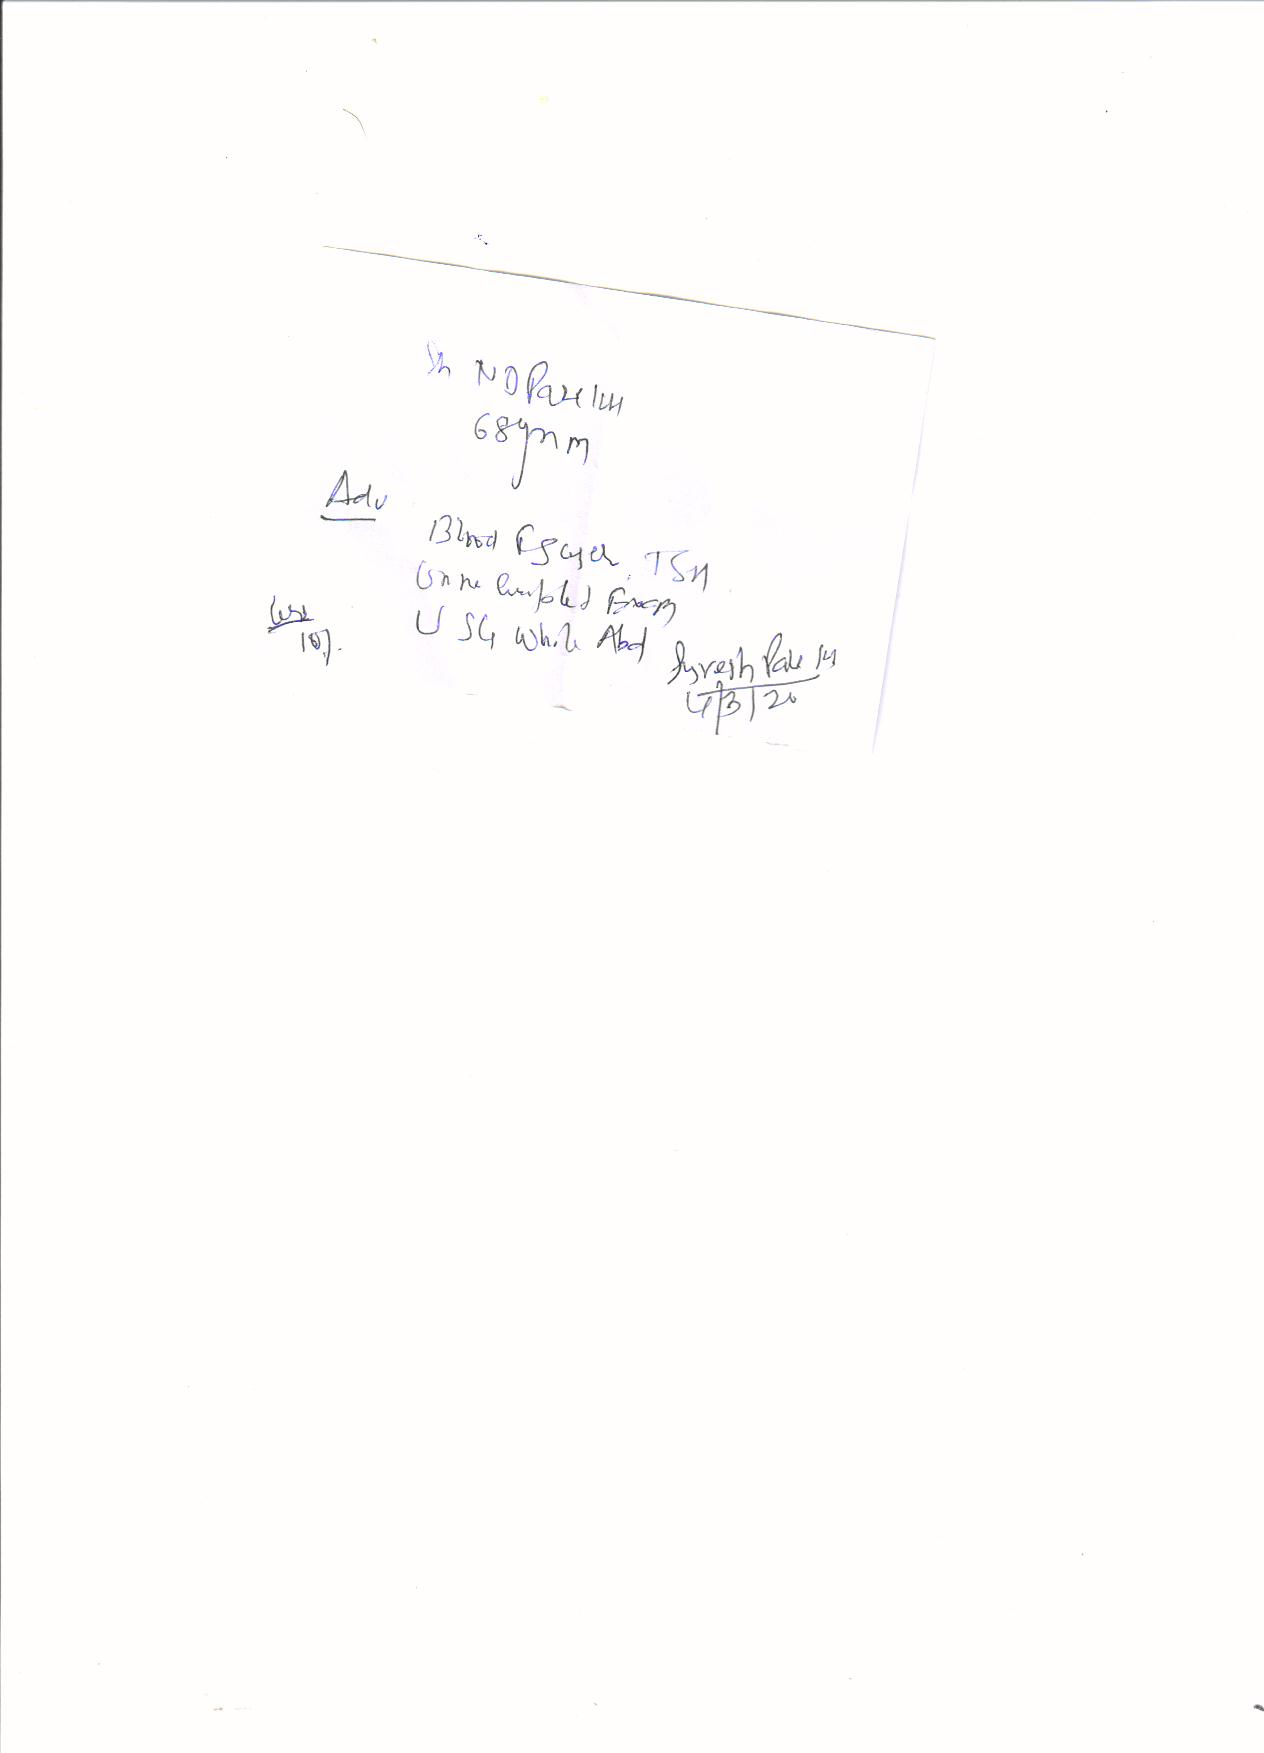 Sh N D Parekh
68 yr m
Adv
Blood Sugar, TSH
Urine Completed Exam
USG Whole Abd
Less
10%.
Suresh Parekh
4/3/20